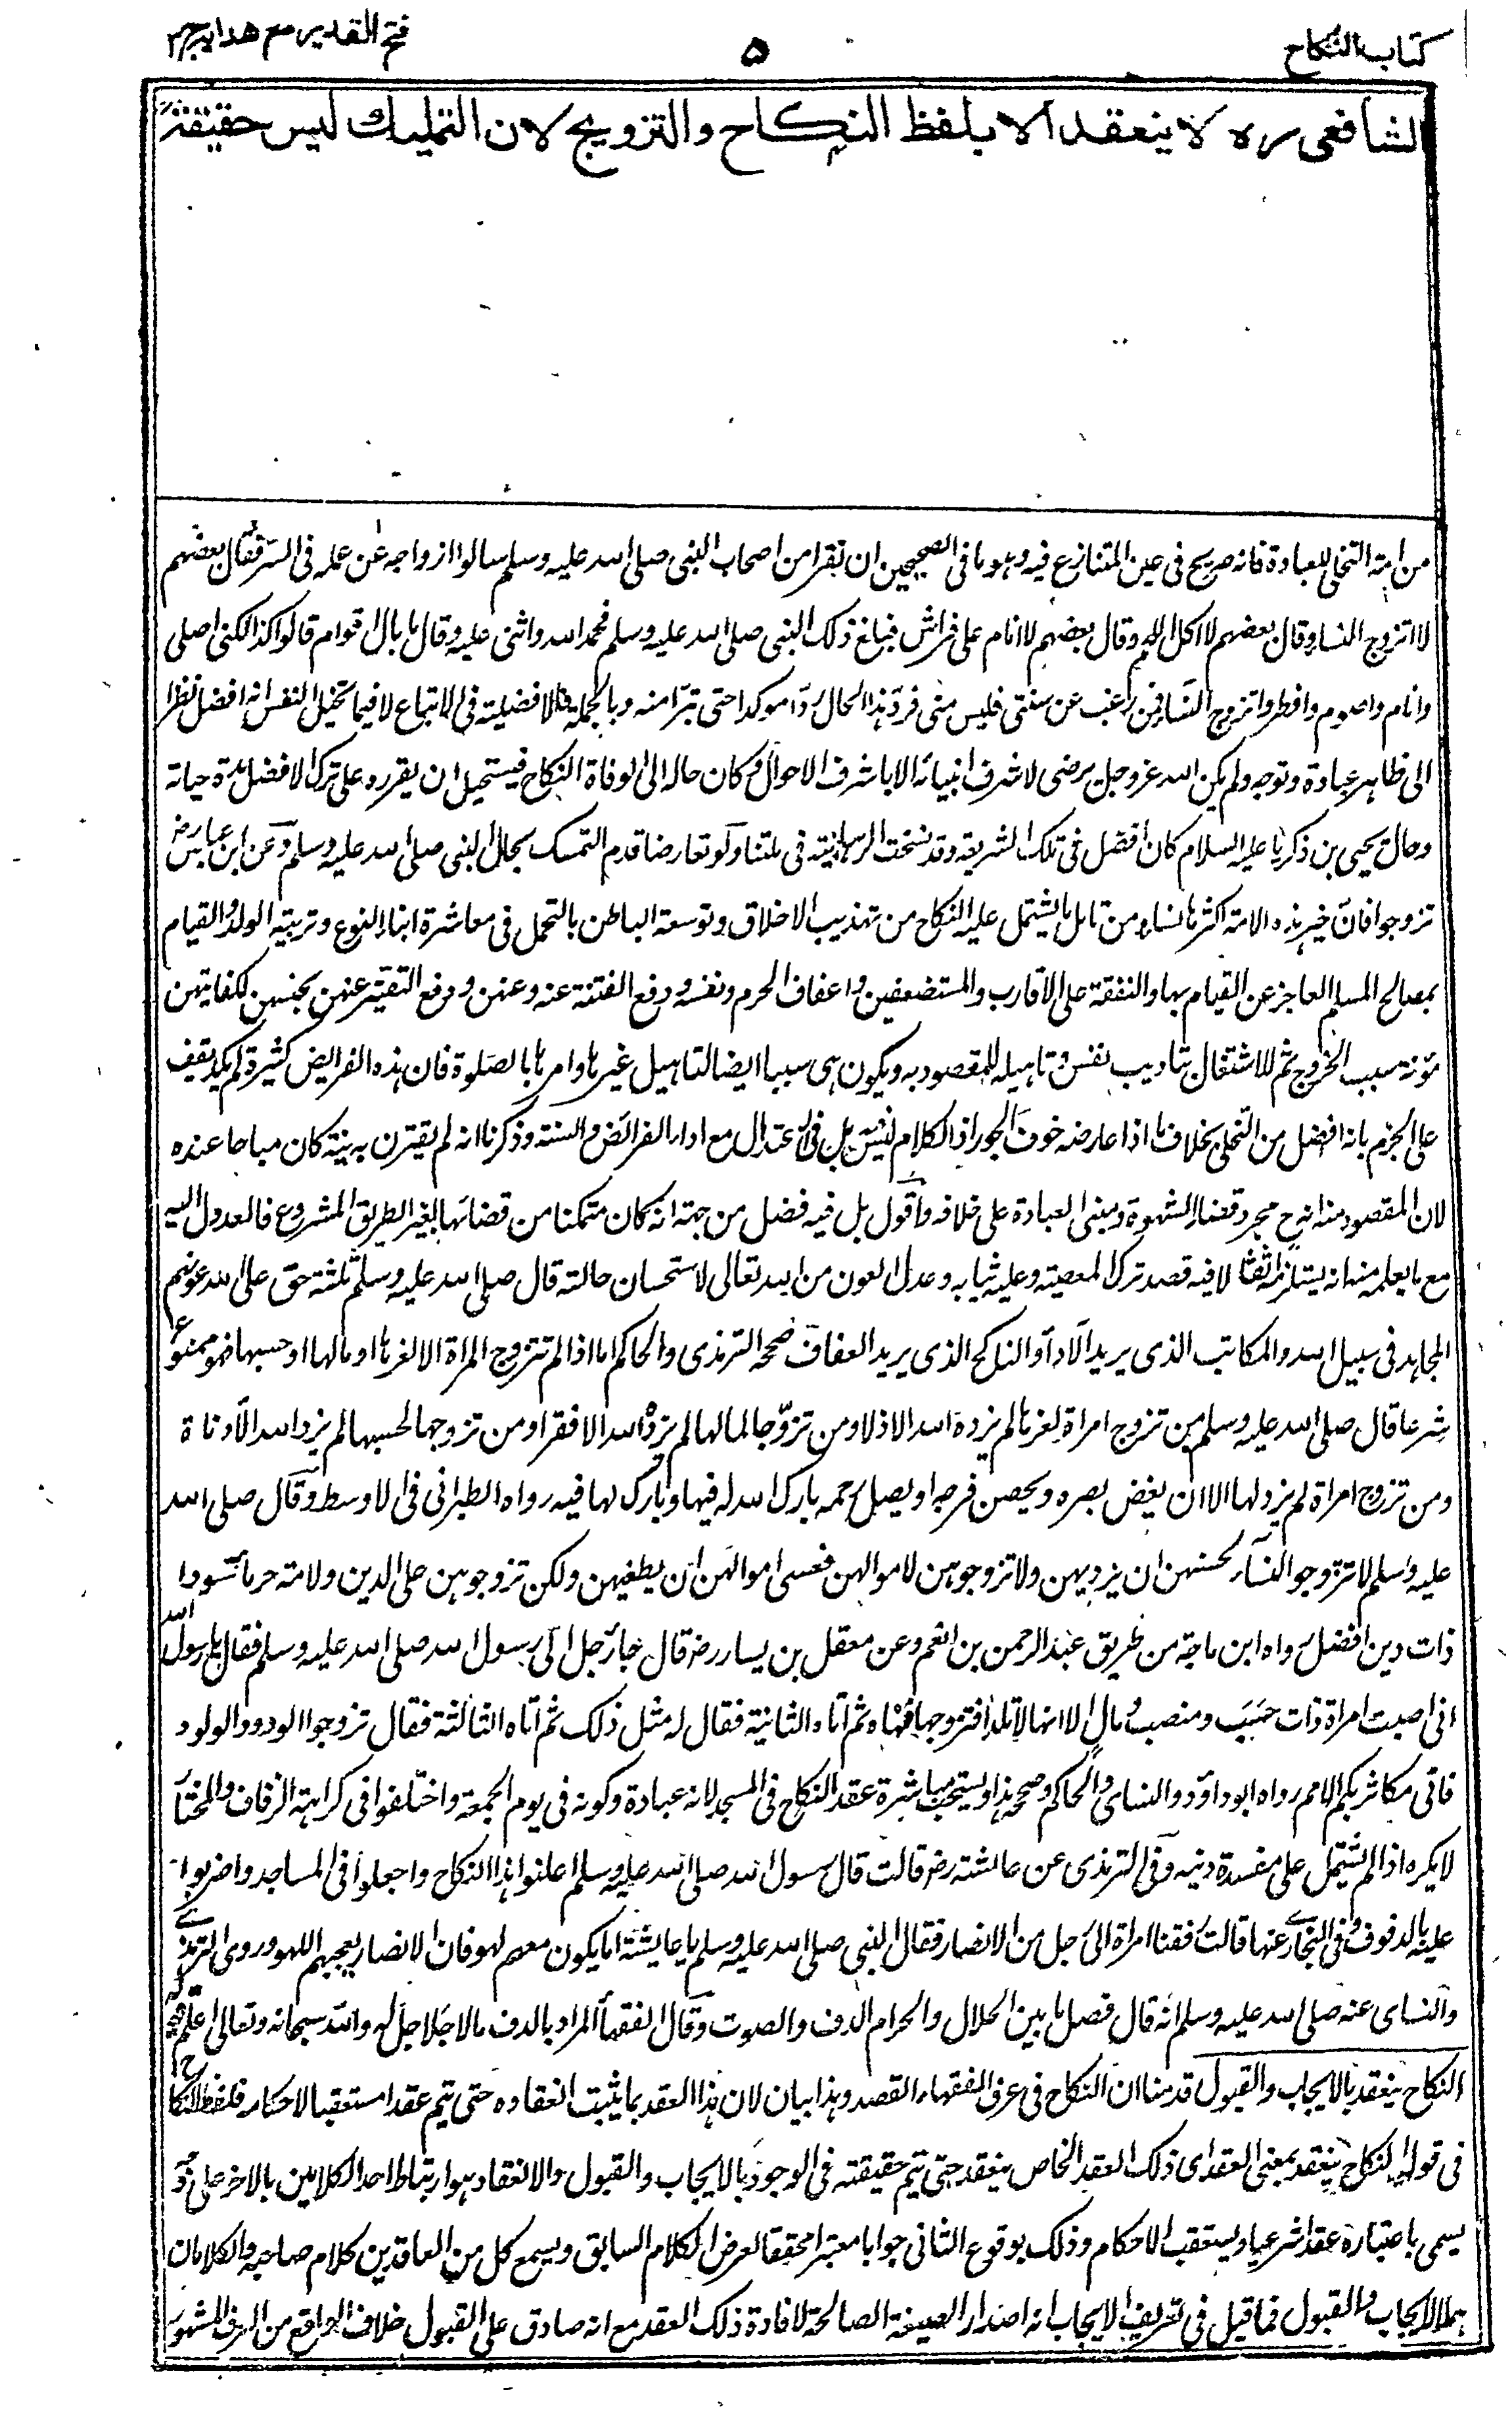 كتاب النكاح
٥
فتح القدير مع هداية ج ٢
الشافعى ره لا ينعقد الا بلفظ النكاح والتزويج لان التمليك ليس حقيقة
من امته التخلى للعبادة فانه صريح فى عين المتنازع فيه وهو ما فى الصحيحين ان نفرا من اصحاب النبى صلى الله عليه وسلم سالوا ازواجه عن عمله فى السر فقال بعضهم
لا اتزوج النساء وقال بعضهم لا اكل اللحم وقال بعضهم لا انام على فراش فبلغ ذلك النبى صلى الله عليه وسلم فحمد الله واثنى عليه وقال ما بال اقوام قالوا كذا لكنى اصلى
وانام واصوم وافطر واتزوج النساء فمن رغب عن سنتى فليس منى فرد هذا الحال ردا موكدا حتى تبرا منه وبالجملة فالافضلية فى الاتباع لا فيما تخيل النفس انه افضل نظرا
الى ظاهر عبادة وتوجه ولم يكن الله عز وجل يرضى لاشرف انبيائه الا باشرف الاحوال وكان حاله الى الوفاة النكاح فيستحيل ان يقرره على ترك الافضل مدة حياته
وحال يحيى بن زكريا عليه السلام كان افضل فى تلك الشريعة وقد نسخت الرهبانية فى ملتنا ولو تعارضا قدم التمسك بحال النبى صلى الله عليه وسلم وعن ابن عباس رض
تزوجوا فان خير هذه الامة اكثرها نساء ومن تامل ما يشتمل عليه النكاح من تهذيب الاخلاق وتوسعة الباطن بالتحمل فى معاشرة ابناء النوع وتربية الولد والقيام
بمصالح المسلم العاجز عن القيام بها والنفقة على الاقارب والمستضعفين واعفاف الحرم ونفسه ودفع الفتنة عنه وعنهن ودفع التقتير عنهن بحبسهن لكفايتهن
مؤنة سبب الخروج ثم الاشتغال بتاديب نفسه وتاهيله للمقصود به ويكون هى سببا ايضا لتاهيل غيرها وامرها بالصلوة فان هذه الفرايض كثيرة لم يكد يقف
على الجزم بانه افضل من التخلى بخلاف ما اذا عارضه خوف الجور اذ الكلام ليس فيه بل فى الاعتدال مع اداء الفرائض والسنة وذكرنا انه لم يقترن به نية كان مباحا عنده
لان المقصود منه انه ح مجرد قضاء الشهوة ومبنى العبادة على خلافه واقول بل فيه فضل من جهة انه كان متمكنا من قضائها بغير الطريق المشروع فالعدول اليه
مع ما يعلمه منه انه يستلزم اثقالا فيه قصد ترك المعصية وعليه يثاب وعد العون من الله تعالى لاستحسان حالته قال صلى الله عليه وسلم ثلثة حق على الله عونهم
المجاهد فى سبيل الله والمكاتب الذى يريد الاداء والناكح الذى يريد العفاف صححه الترمذى والحاكم اما اذا لم تتزوج المراة الا لعزها او مالها او حسبها فهو ممنوع
شرعا قال صلى الله عليه وسلم من تزوج امراة لعزها لم يزده الله الا ذلا ومن تزوجها لمالها لم يزده الله الا فقرا ومن تزوجها لحسبها لم يزده الله الا دناءة
ومن تزوج امراة لم يرد لها الا ان يغض بصره ويحصن فرجه او يصل رحمه بارك الله له فيها وبارك لها فيه رواه الطبرانى فى الاوسط وقال صلى الله
عليه وسلم لا تتزوجوا النساء لحسنهن ان يرديهن ولا تزوجوهن لاموالهن فعسى اموالهن ان يطغيهن ولكن تزوجوهن على الدين ولامة خرماء سوداء
ذات دين افضل رواه ابن ماجة من طريق عبد الرحمن بن انعم وعن معقل بن يسار رض قال جاء رجل الى رسول الله صلى الله عليه وسلم فقال يا رسول الله
انى اصبت امراة ذات حسب ومنصب ومال الا انها لا تلد افتزوجها فنهاه ثم اتاه الثانية فقال له مثل ذلك ثم اتاه الثالثة فقال تزوجوا الودود الولود
فانى مكاثر بكم الامم رواه ابو داود والنساى والحاكم وصححه هذا ويستحب مباشرة عقد النكاح فى المسجد لانه عبادة وكونه فى يوم الجمعة واختلفوا فى كراهة الزفاف والمختار
لا يكره اذا لم يشتمل على مفسدة دينية وفى الترمذى عن عائشة رض قالت قال رسول الله صلى الله عليه وسلم اعلنوا هذا النكاح واجعلوه فى المساجد واضربوا
عليه بالدفوف وفى البخارى عنها قالت زففنا امراة الى رجل من الانصار فقال النبى صلى الله عليه وسلم يا عايشة اما يكون معهم لهو فان الانصار يعجبهم اللهو وروى الترمذى
والنساى عنه صلى الله عليه وسلم انه قال فصل ما بين الحلال والحرام الدف والصوت وقال الفقهاء المراد بالدف ما لا جلاجل له والله سبحانه وتعالى اعلم قوله
النكاح ينعقد بالايجاب والقبول قدمنا ان النكاح فى عرف الفقهاء العقد وهذا بيان لان هذا العقد بما يثبت انعقاده حتى يتم عقدا مستعقبا لاحكامه فلفظ النكاح
فى قوله النكاح ينعقد بمعنى العقد اى ذلك العقد الخاص ينعقد حتى يتم حقيقته فى الوجود بالايجاب والقبول والانعقاد هو ارتباط احد الكلامين بالاخر على وجه
يسمى باعتباره عقدا شرعيا ويستعقب الاحكام وذلك بوقوع الثانى جوابا معتبرا محققا لغرض الكلام السابق ويسمع كل من العاقدين كلام صاحبه والكلامان
هما الايجاب والقبول فما قيل فى تعريف الايجاب انه اصدار الصيغة الصالحة لافادة ذلك العقد مع انه صادق على القبول خلاف الواقع من العرف المشهور